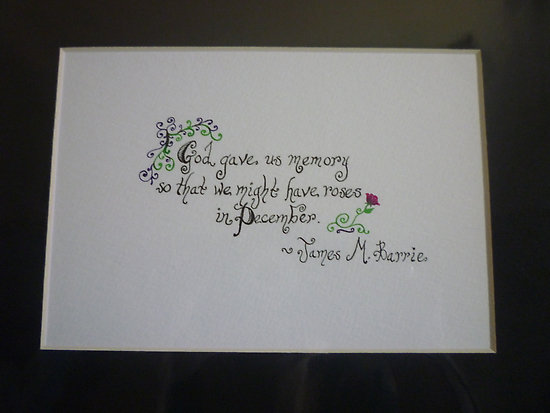 God gave us memory
so that we might have roses
in December.
~ James M. Barrie